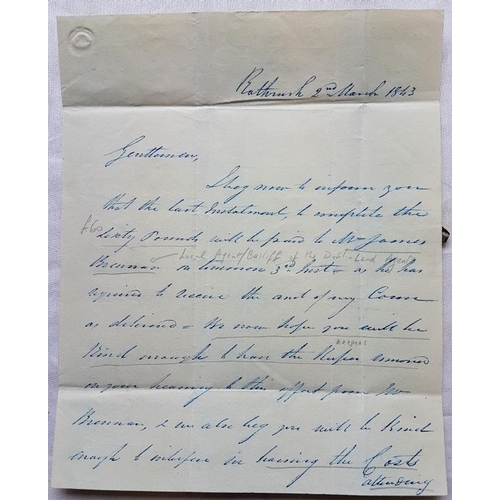 Rathrush 2nd March 1843
Gentlemen,
I beg now to inform you
that the last Instalment, to complete the
£60
Sixty Pounds will be paid to Mr James
Local Agent/Bailiff of the Dublin Land Agent
Brennan on tomorrow 3rd Inst - as he has
agreed to receive the and of my Corn
as delivered - We now hope you will be
Keepers
Kind enough to have the Keepers removed
on your hearing to this effect from Mr
Brennan, & we also beg you will be Kind
enough to interfere in having the Costs
attending